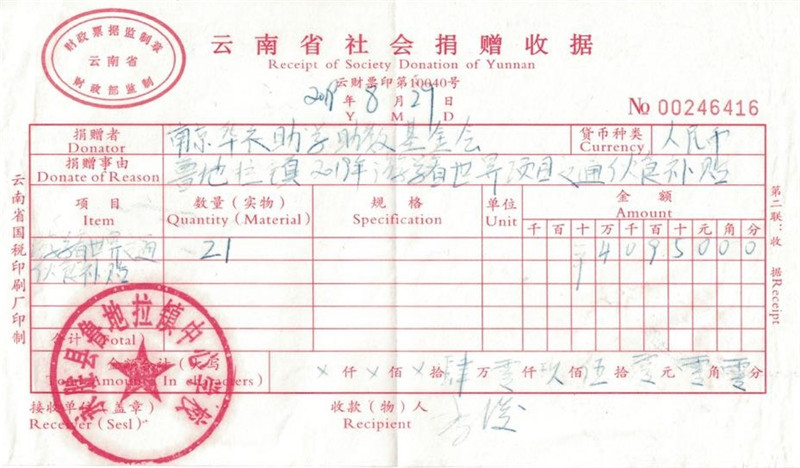 财政票据监制章
云南省
财政部监制
云南省社会捐赠收据
Receipt of Society Donation of Yunnan
云财票印第10040号
2019年8月29日
Y M D
No 00246416
捐赠者 南京华衣助学助教基金会 货币种类 人民币
Donator Currency
捐赠事由 鲁地拉镇2019年游学看世界项目交通伙食补贴
Donate of Reason
项目 数量(实物) 规格 单位 金额
Item Quantity (Material) Specification Unit Amount
千 百 十 万 千 百 十 元 角 分
游学看世界交通 21 ¥ 4 0 9 5 0 0 0
伙食补贴
合计 Total
Total Amounts In characters)
× 仟 × 佰 × 拾 肆 万 零 仟 玖 佰 伍 拾 零 元 零 角 零 分
接收单位(盖章) 收款(物)人
Receiver (Sesl) Recipient
县鲁地拉镇中心学校
云南省国税印刷厂印制
第二联:收据 Receipt